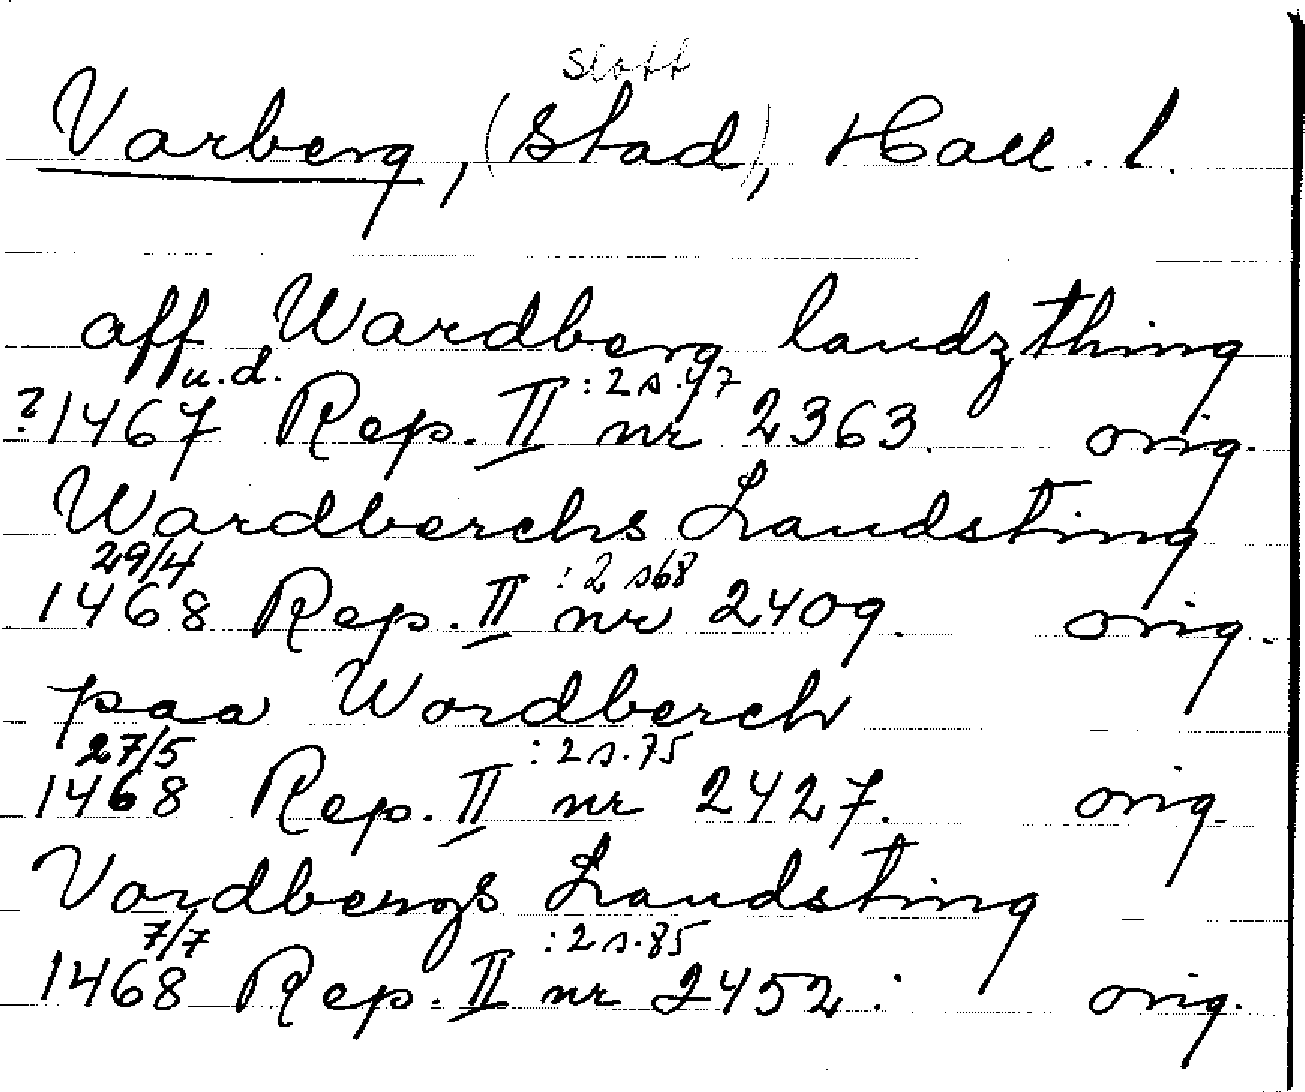 slott
Varberg, (stad), Hall. l.
aff Wardberg landzthing
u.d. :2 s.47
?1467 Rep. II nr 2363. orig.
Wardberchs Landsting
29/4 :2 s68
1468 Rep. II nr 2409. orig.
paa Wordberch
27/5 :2 s.75
1468 Rep. II nr 2427. orig.
Vordbergs Landsting
7/7 :2 s.85
1468 Rep. II nr 2452. orig.